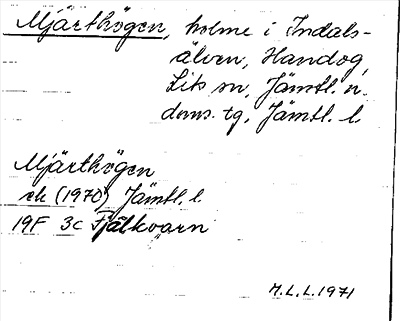 Mjärthögen, holme i Indals-
älven, Handog,
Lits sn, Jämtl. n.
doms. tg, Jämtl. l.
Mjärthögen
ek (1970) Jämtl. l.
19F 3c Fjälkvarn
M.L.L. 1971